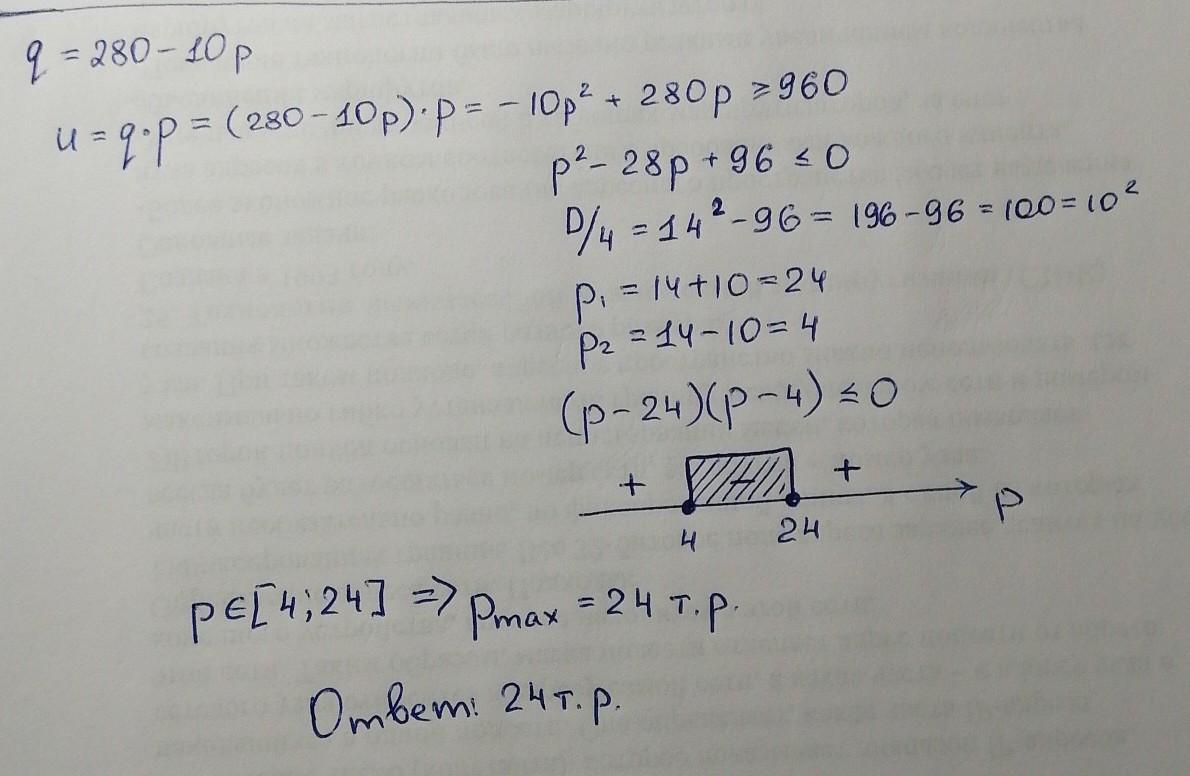 q = 280 - 10p
u = q·p = (280 - 10p)·p = -10p² + 280p ≥ 960
p² - 28p + 96 ≤ 0
D/4 = 14² - 96 = 196 - 96 = 100 = 10²
p₁ = 14 + 10 = 24
p₂ = 14 - 10 = 4
(p - 24)(p - 4) ≤ 0
+ - +
4 24 p
p ∈ [4; 24] => pmax = 24 т.р.
Ответ: 24 т.р.